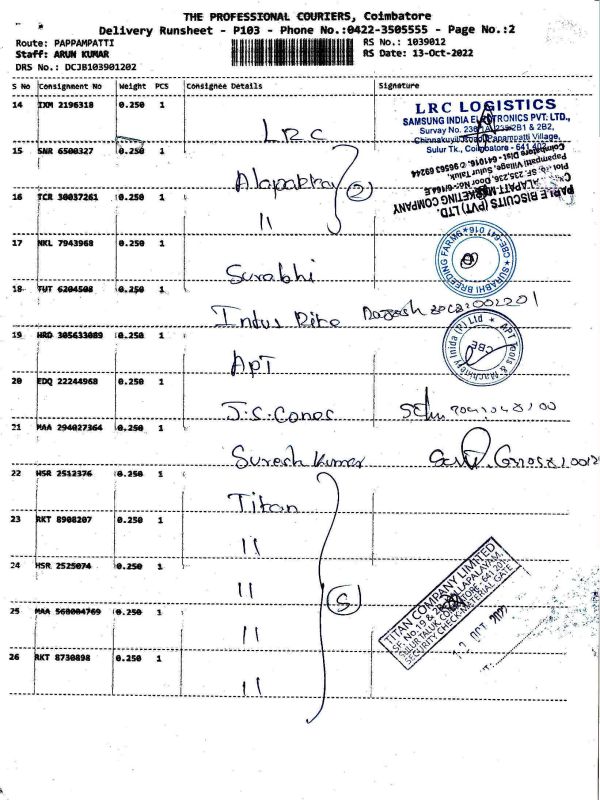 THE PROFESSIONAL COURIERS, Coimbatore
Delivery Runsheet - P103 - Phone No.:0422-3505555 - Page No.:2
Route: PAPPAMPATTI RS No.: 1039012
Staff: ARUN KUMAR RS Date: 13-Oct-2022
DRS No.: DCJB103901202
S No Consignment No Weight PCS Consignee Details Signature
14 IXM 2196318 0.250 1
LRC
LRC LOGISTICS
SAMSUNG INDIA ELECTRONICS PVT. LTD.,
Survay No. 2B1 & 2B2,
Chinnakuyil Road, Papampatti Village,
Sulur Tk., Coimbatore - 641 402
15 SNR 6500327 0.250 1
Alapakkay 2
PARLE BISCUITS (PVT) LTD.
ALAPATT MARKETING COMPANY
Papampatti Village, Sulur Taluk,
Coimbatore Dist - 641016. 96563 69244
16 TCR 30037261 0.250 1
11
17 NKL 7943968 0.250 1
Surabhi
SURABHI BREEDING FARMS CBE-641 016
18 TUT 6204508 0.250 1
Indus Rite
19 HRD 305633089 0.250 1
APT
APT Tools & Machinery India (P) Ltd CBE
20 EDQ 22244968 0.250 1
J.S.Cones
21 MAA 294027364 0.250 1
Suresh Kumar
22 HSR 2512376 0.250 1
Titan
23 RKT 8908207 0.250 1
11
24 HSR 2525074 0.250 1
11 5
TITAN COMPANY LIMITED
SULUR TALUK COIMBATORE 641 201
SECURITY CHECK-MATERIAL GATE
25 MAA 560004769 0.250 1
11
26 RKT 8730898 0.250 1
11